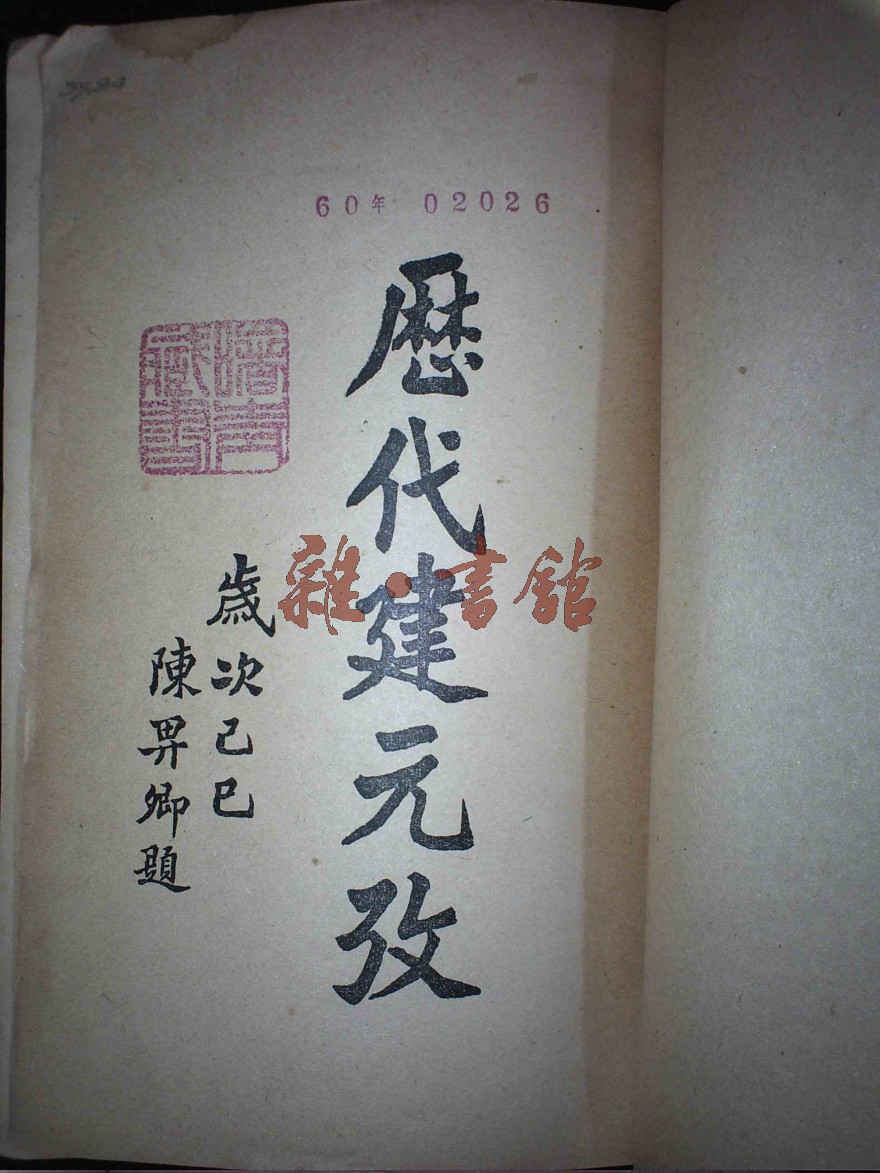 60年 02026
歴代建元攷
歳次己巳
陳畀卿題
雜·書舘